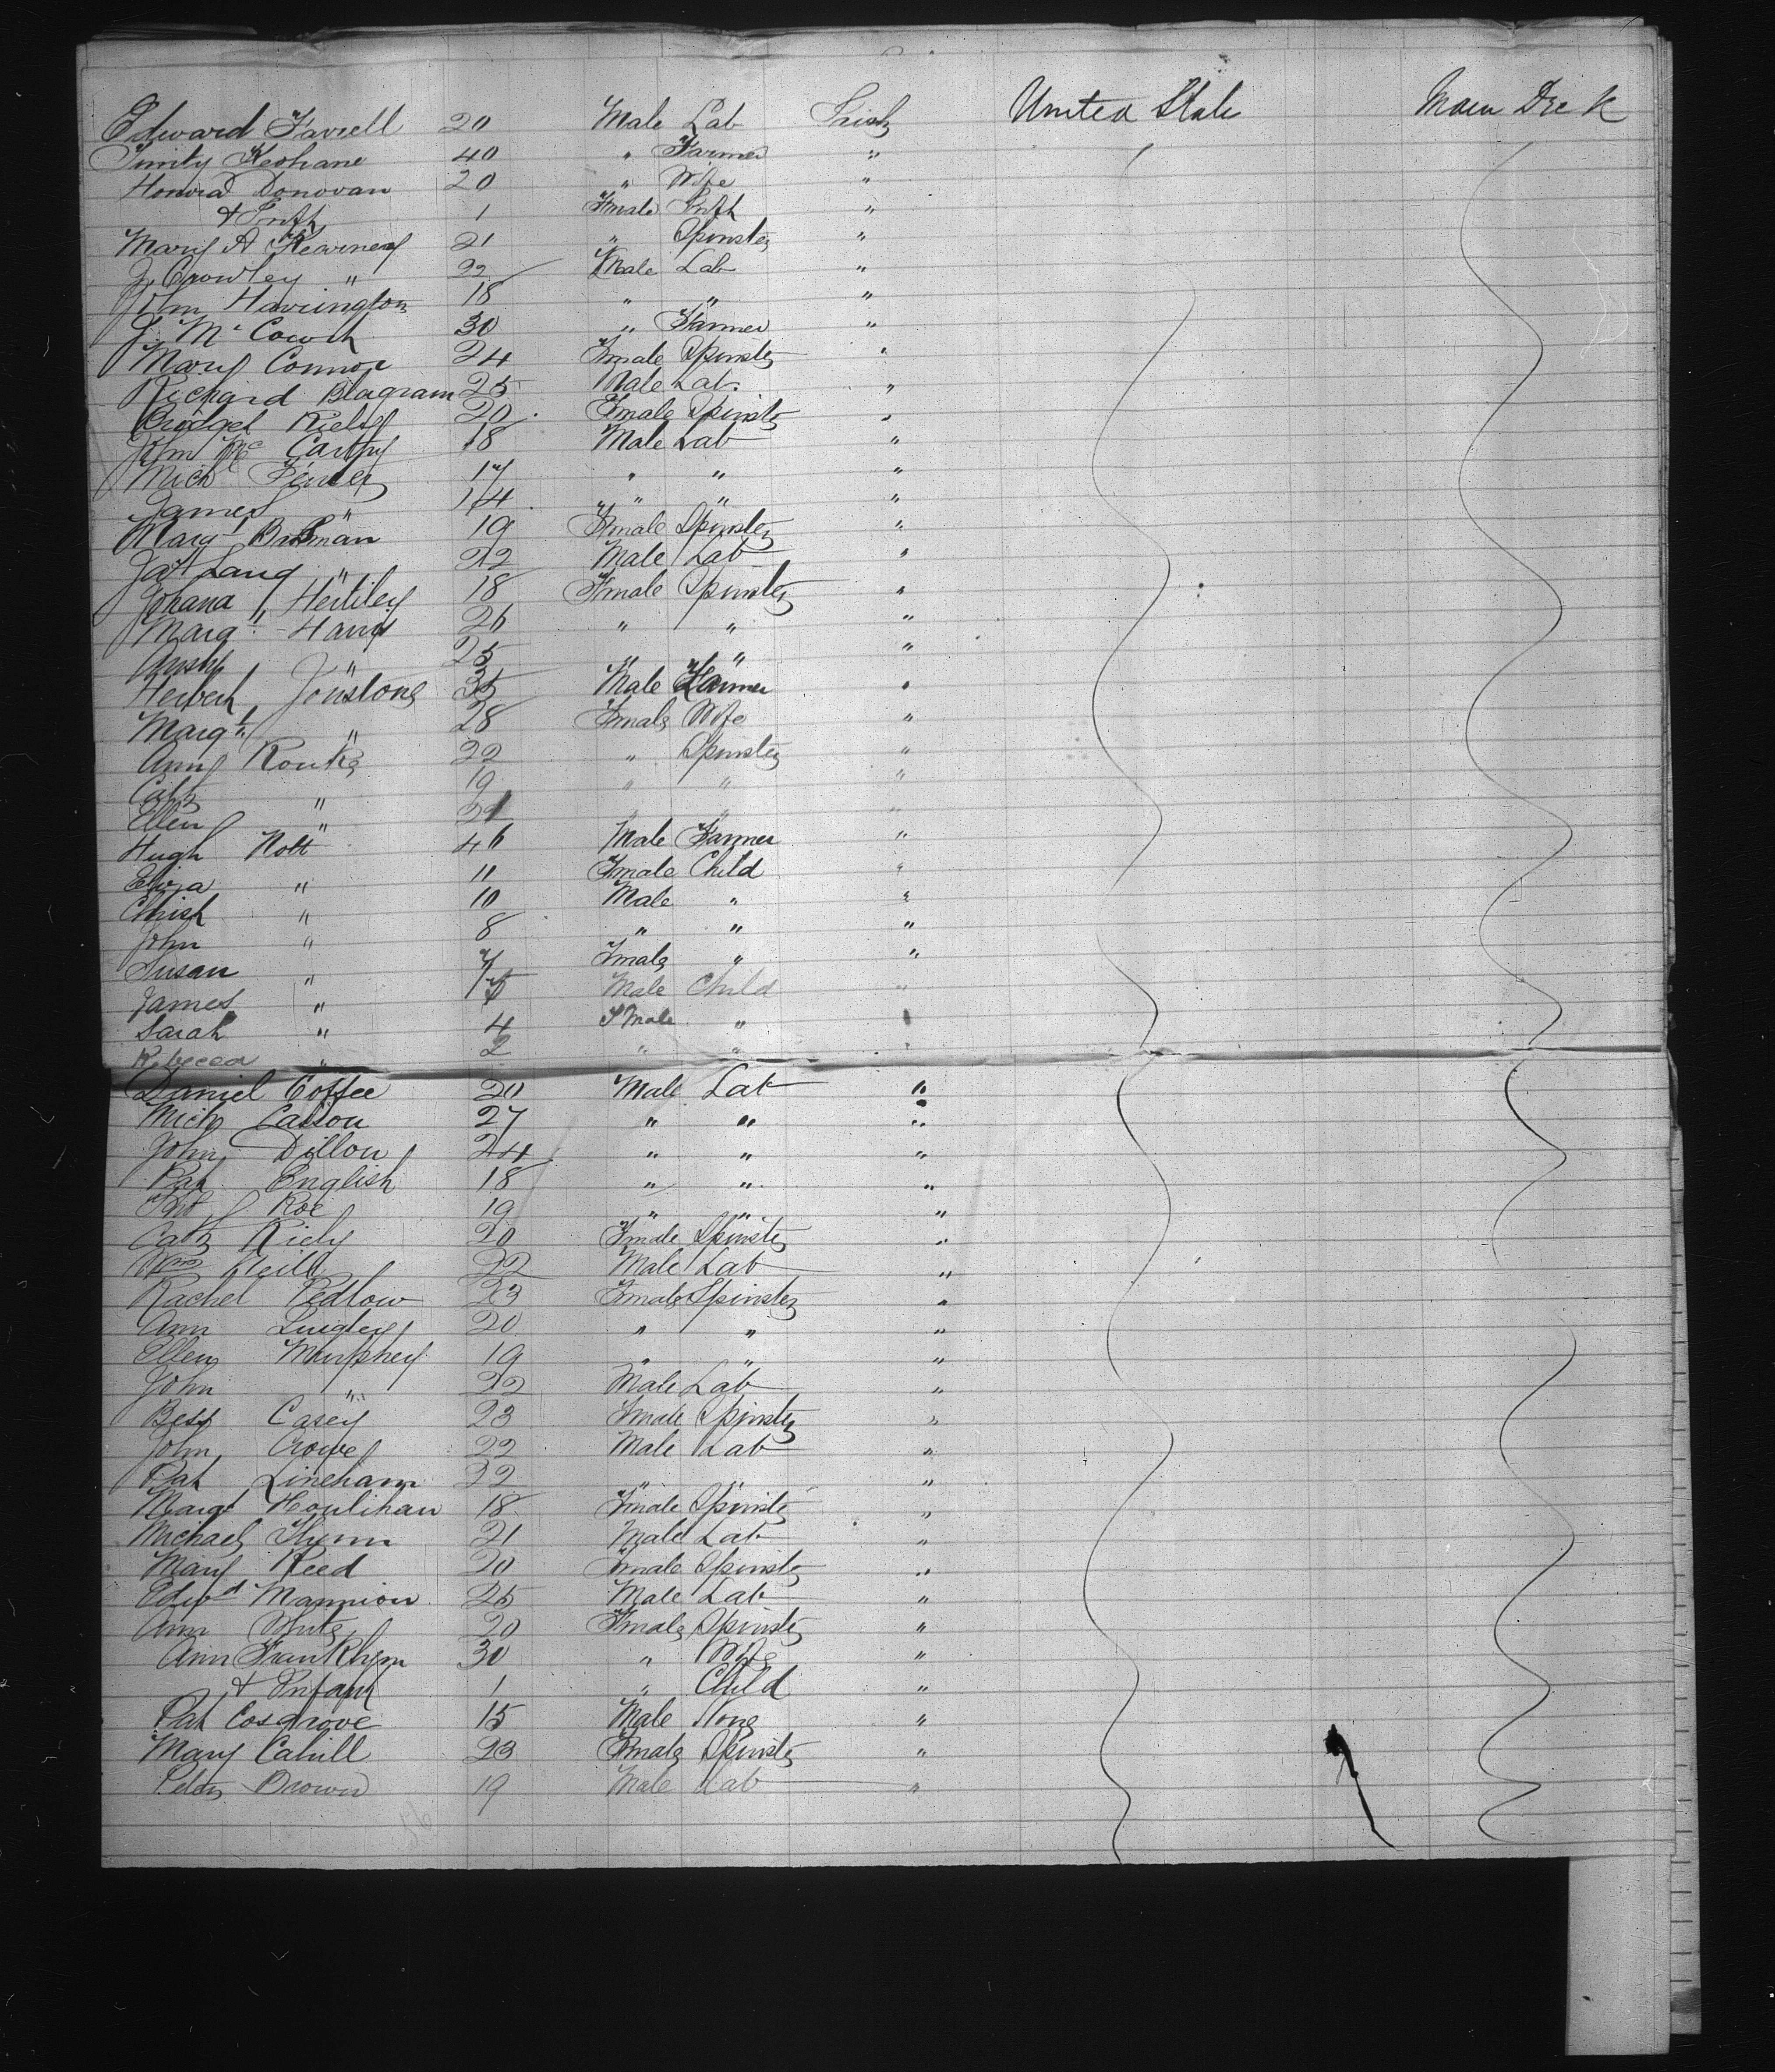 Edward Farrell 20 Male Lab Irish United State Main Deck
Timity Keohane 40 " Farmer "
Honora Donovan 20 " Wife "
& Infth 1 Female Infth "
Mary A Kearney 21 " Spinster "
J. Crowley " 22 Male Lab "
John Harrington 18 " " "
J. Mc 30 " Farmer "
Mary Connor 24 Female Spinster "
Richard Blagram 25 Male Lab. "
Bridget Riely 20 Female Spinster "
John Mc Carthy 18 Male Lab "
Mich 17 " " "
James " 14 " " "
Margt 19 Female Spinster "
Lang " 22 Male Lab "
Johana 18 Female Spinster "
Margt 26 " " "
" 25 " " "
Herbert Jonstone 35 Male Farmer "
Margt " 28 Female Wife "
Ann Rourke 22 " Spinster "
Cath " 19 " " "
Ellen " 21 " " "
Hugh 46 Male Farmer "
Eliza " 11 Female Child "
Christ " 10 Male " "
John " 8 " " "
Susan " 7 Female " "
James " Male Child "
Sarah " 4 Female " "
Rebecca " 2 " " "
Daniel Coffee 20 Male Lab "
Mich 27 " " "
John Dillon 24 " " "
Pat English 18 " " "
Roe 19 " " "
Cath Riely 20 Female Spinster "
Wm Neill 22 Male Lab "
Rachel Pedlow 23 Female Spinster "
Ann Quigley 20 " " "
Ellen Murphey 19 " " "
John " 22 Male Lab "
Bess Casey 23 Female Spinster "
John Crowe 22 Male Lab "
Pat Lineham 22 " " "
Margt Houlihan 18 Female Spinster "
Michael 21 Male Lab "
Mary Reed 20 Female Spinster "
Edwd Mannion 25 Male Lab "
Ann White 20 Female Spinster "
Ann Franklyn 30 " Wife "
& Infant 1 " Child "
Pat Cosgrove 15 Male None "
Mary Cahill 23 Female Spinster "
Peter Brown 19 Male Lab "
56